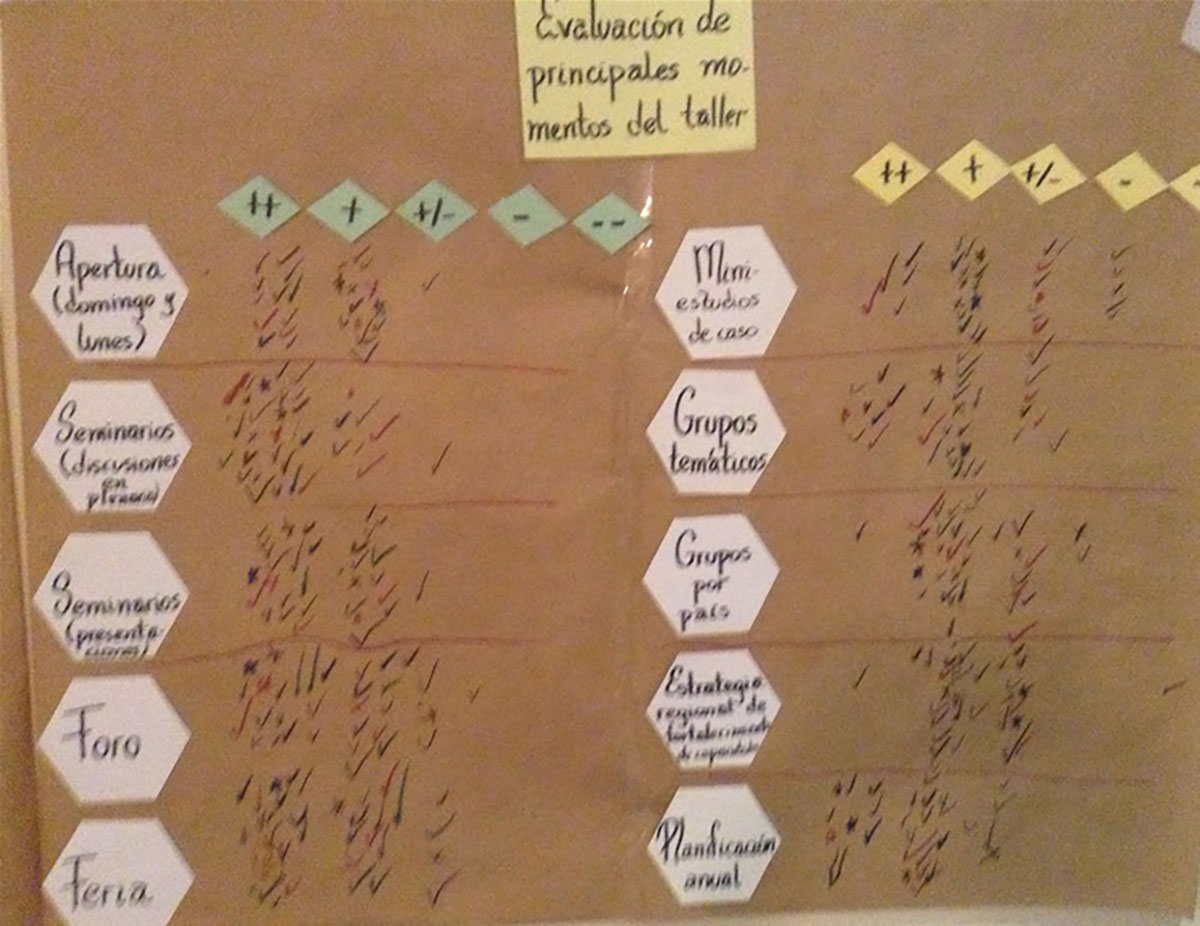 Evaluación de
principales mo-
mentos del taller
++ + +/- - --
Apertura
(domingo y
lunes)
Seminarios
(discusiones
en
plenaria)
Seminarios
(presenta-
ciones)
Foro
Feria
++ + +/- -
Mini-
estudios
de caso
Grupos
temáticos
Grupos
por
país
Estrategia
regional de
fortalecimiento
de capacidades
Planificación
anual